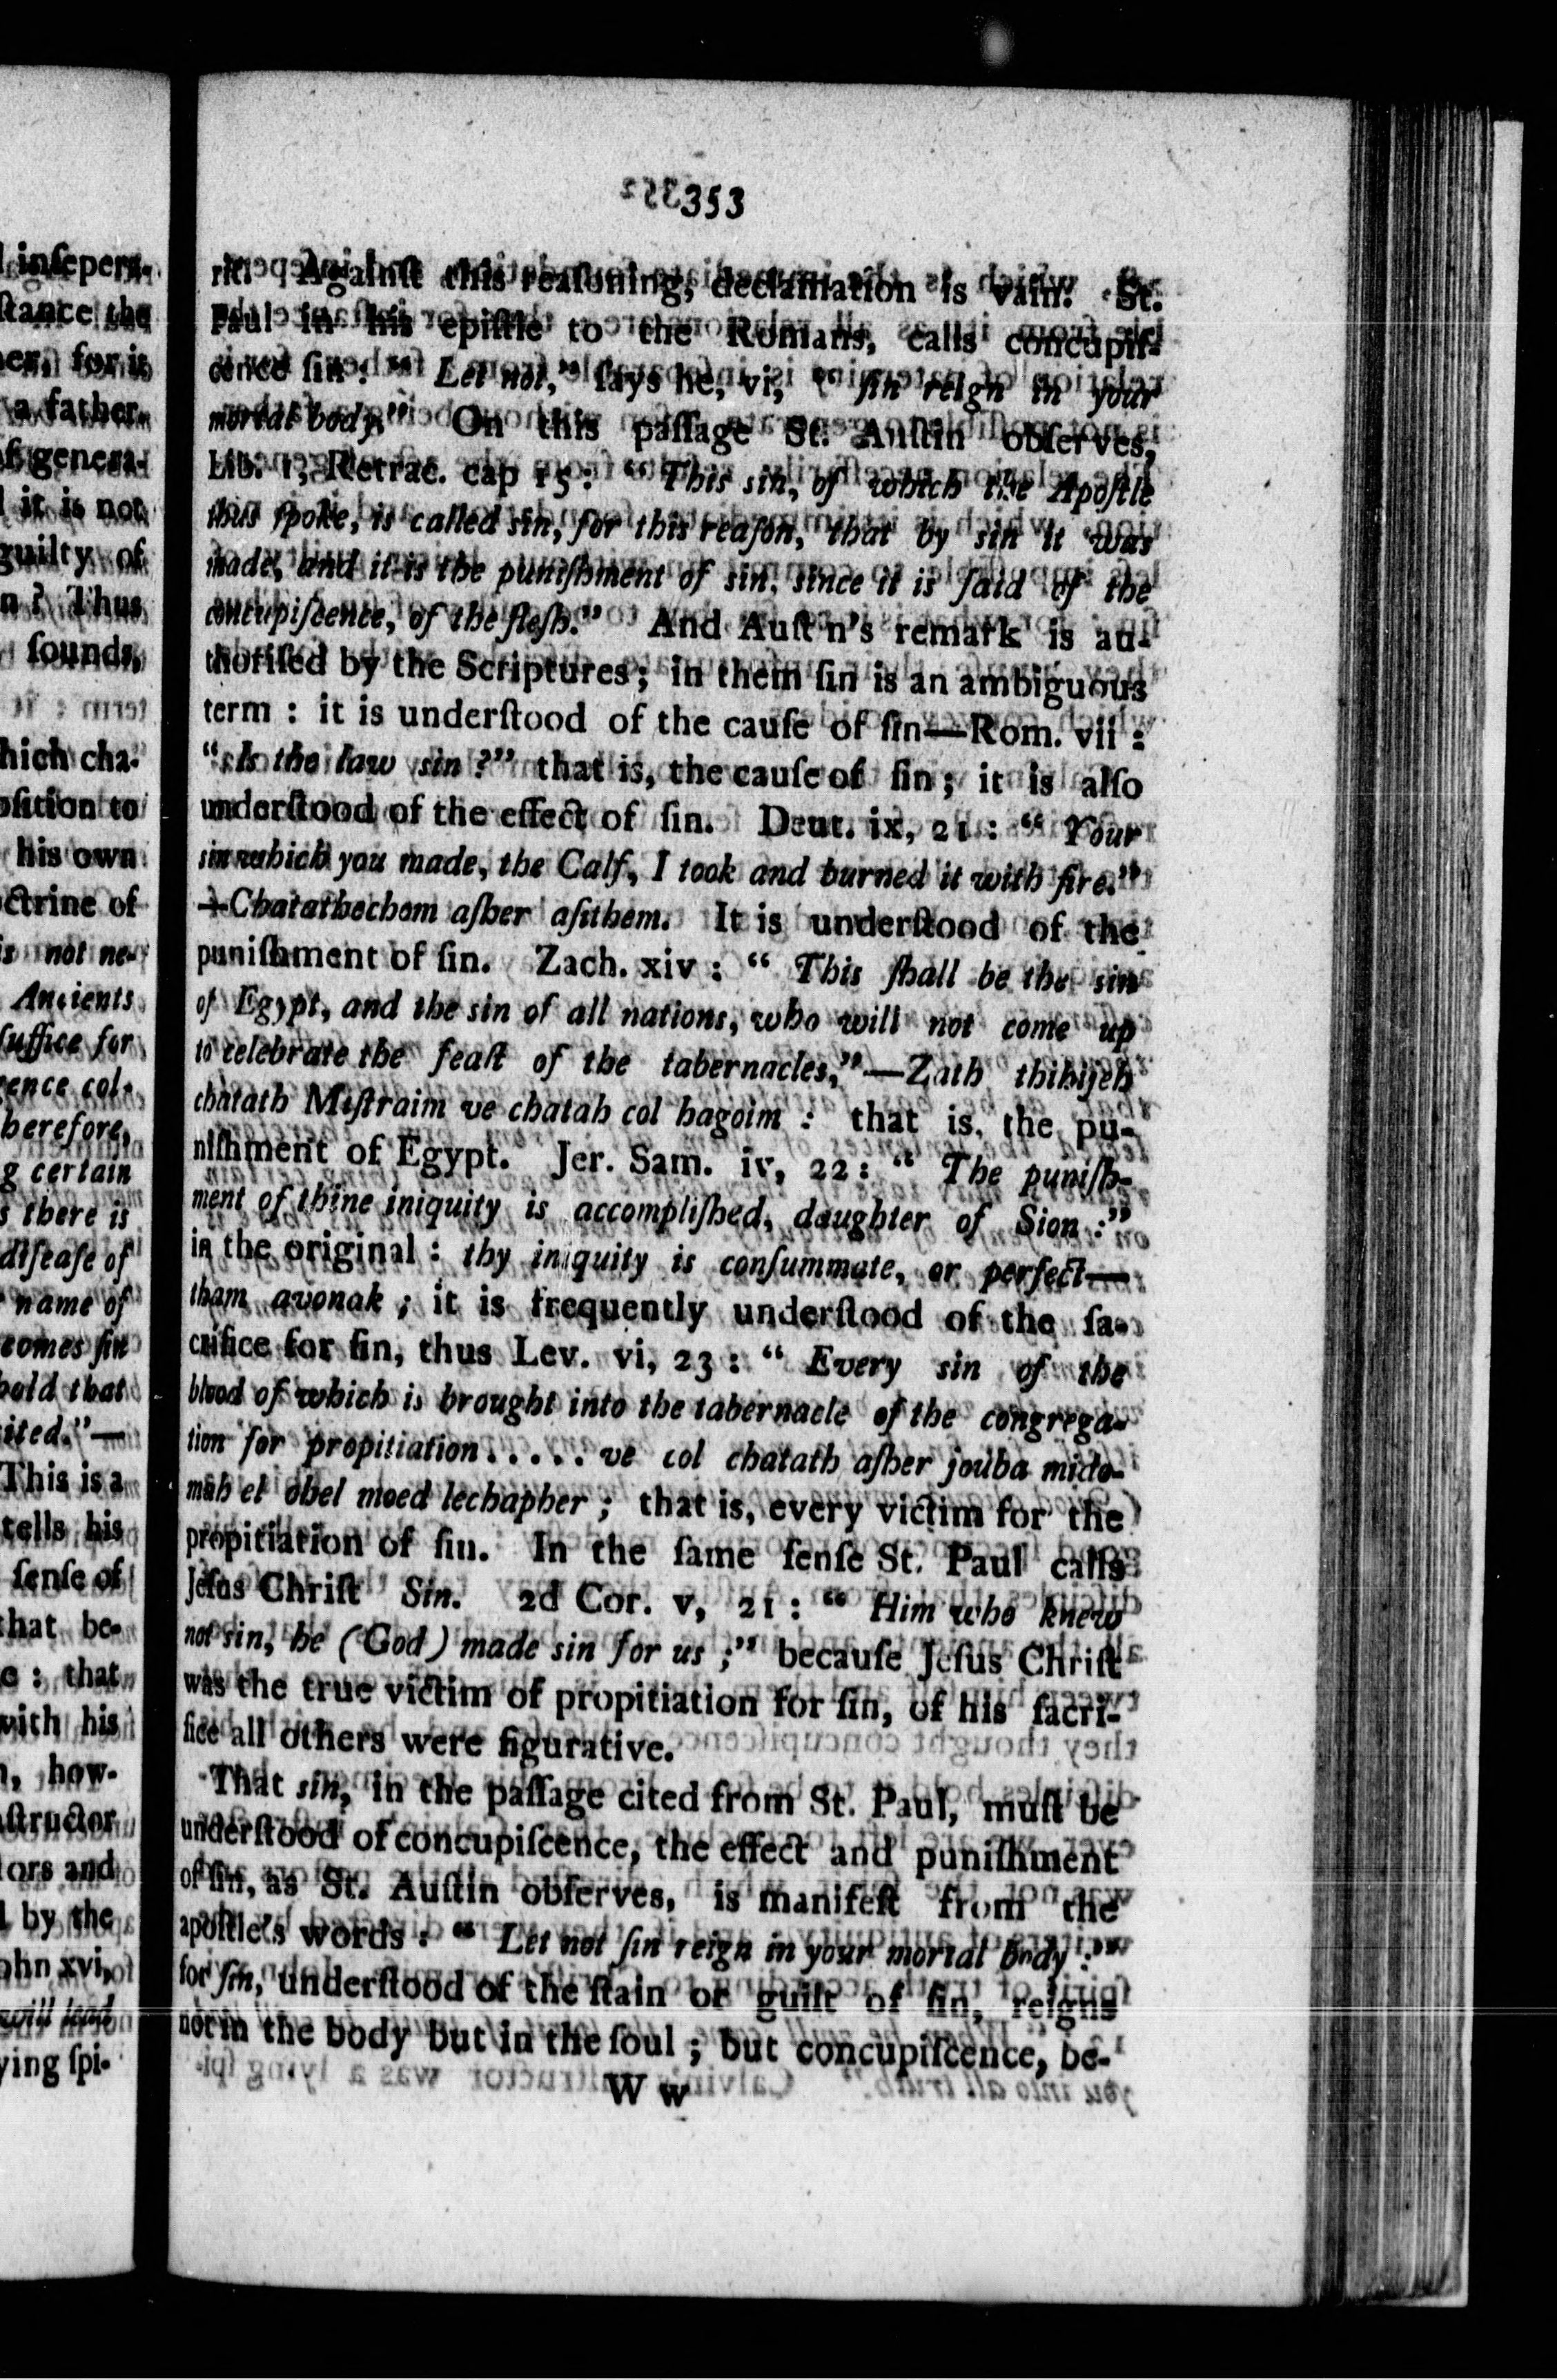 353
rit. Againſt this reaſoning, declamation is vain. St.
Paul in his epiſtle to the Romans, calls concupiſ-
cence ſin: " Let not," ſays he, vi, " ſin reign in your
mortal body." On this paſſage St. Auſtin obſerves,
Lib. 1, Retrac. cap 15: " This sin, of which the Apoſtle
thus ſpoke, is called sin, for this reaſon, that by sin it was
made, and it is the puniſhment of sin, since it is ſaid of the
concupiſcence, of the fleſh." And Auſt n's remark is au-
thoriſed by the Scriptures; in them ſin is an ambiguous
term : it is underſtood of the cauſe of ſin—Rom. vii :
" Is the law sin ?" that is, the cauſe of ſin; it is alſo
underſtood of the effect of ſin. Deut. ix, 21 : " Your
sin which you made, the Calf, I took and burned it with fire."
—Chatathechem aſher aſithem. It is underſtood of the
puniſhment of ſin. Zach. xiv : " This ſhall be the sin
of Egypt, and the sin of all nations, who will not come up
to celebrate the feaſt of the tabernacles,"—Zath thihijeh
chatath Miſtraim ve chatah col hagoim : that is, the pu-
niſhment of Egypt. Jer. Sam. iv, 22 : " The puniſh-
ment of thine iniquity is accompliſhed, daughter of Sion :"
in the original : thy iniquity is conſummate, or perfect—
tham avonak ; it is frequently underſtood of the ſa-
crifice for ſin, thus Lev. vi, 23 : " Every sin of the
blood of which is brought into the tabernacle of the congrega-
tion for propitiation..... ve col chatath aſher jouba mido-
mah el ohel moed lechapher ; that is, every victim for the
propitiation of ſin. In the ſame ſenſe St. Paul calls
Jeſus Chriſt Sin. 2d Cor. v, 21 : " Him who knew
not sin, he (God) made sin for us ;" becauſe Jeſus Chriſt
was the true victim of propitiation for ſin, of his ſacri-
fice all others were figurative.
That sin, in the paſſage cited from St. Paul, muſt be
underſtood of concupiſcence, the effect and puniſhment
of ſin, as St. Auſtin obſerves, is manifeſt from the
apoſtle's words : " Let not ſin reign in your mortal body :"
for ſin, underſtood of the ſtain or guilt of ſin, reigns
not in the body but in the ſoul ; but concupiſcence, be-
W w